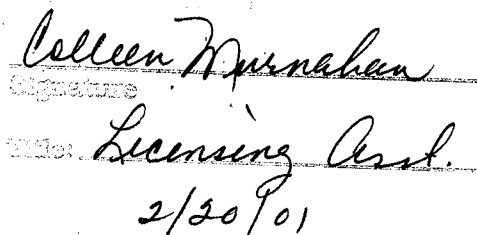 Colleen Murnahan
Signature
Title: Licensing Asst.
2/20/01